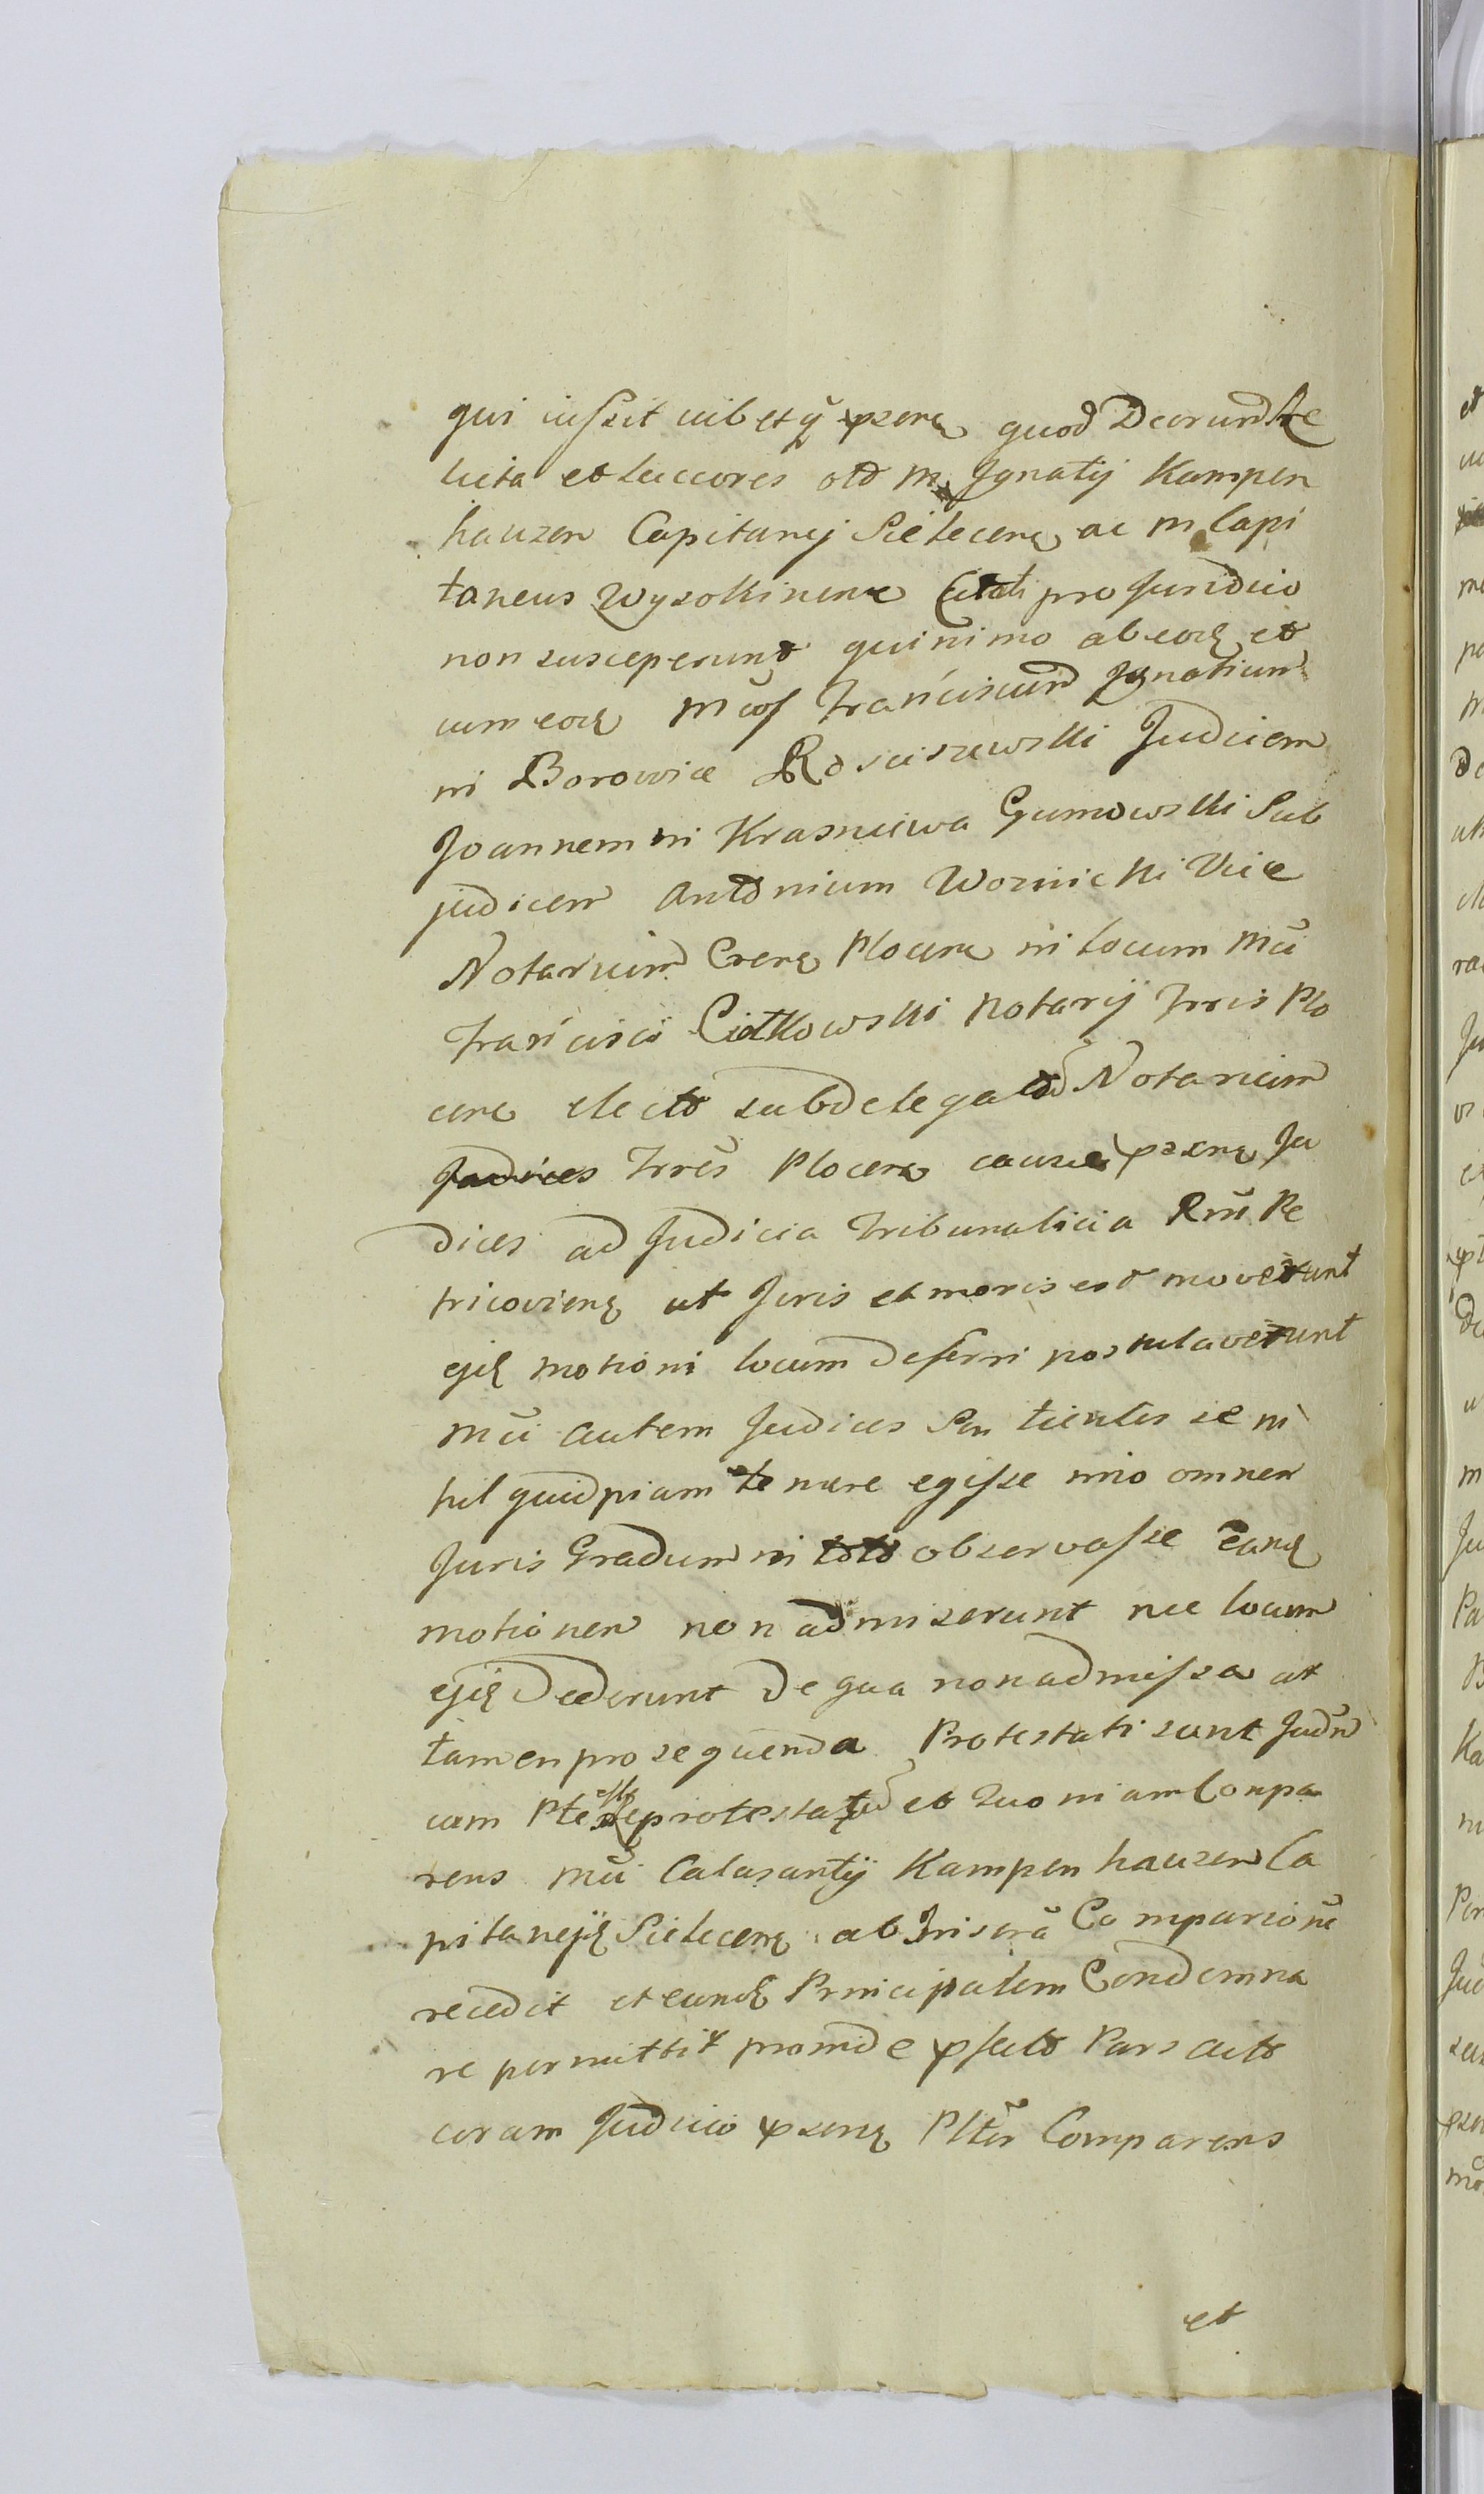 qui iussit iubetq̃ pzens quod Decrund Re
licta et Succores otd M. Ignatij Kampen
hauzen Capitanej Sielecens ac M Capi
taneus Wysokinens Citati pro Juridico
non susceperunt quinimo ab eod et
cum eod Mcos Franciscum Ignatium
in Borowice Rosciszewski Judicem
Joannem in Krasniewa Gumowski Sub
judicem Antonium Woznicki Vice
Notarium Crens Plocens in locum Mci
Francisci Ciotkowski Notarij Trris Plo
cens electo subdelegatum Notarium
Trris Plocens causae pzens Ju
dices ad Judicia Tribunalicia Rni Pe
tricoviens ut Juris et moris est moverunt
ejq motioni locum deferri postulaverunt
Mci autem Judices Sentientes se ni
hil quidpiam temere egisse imo omnem
Juris Gradum in toto observasse eand
motionem non admiserunt nec locum
ejq Dederunt De qua non admissa at
tamen prosequenda Protestati sunt Judm
cum Pte esse protestatum et Quoniam Compa
rens Mci Calasantij Kampenhauzen Ca
pitanejq Sielecens ab Inserta Comparione
recedit et eund Principalem Condemna
re permittit proinde pfecto Pars actо
coram Judicio pzens Ptter Comparens
et